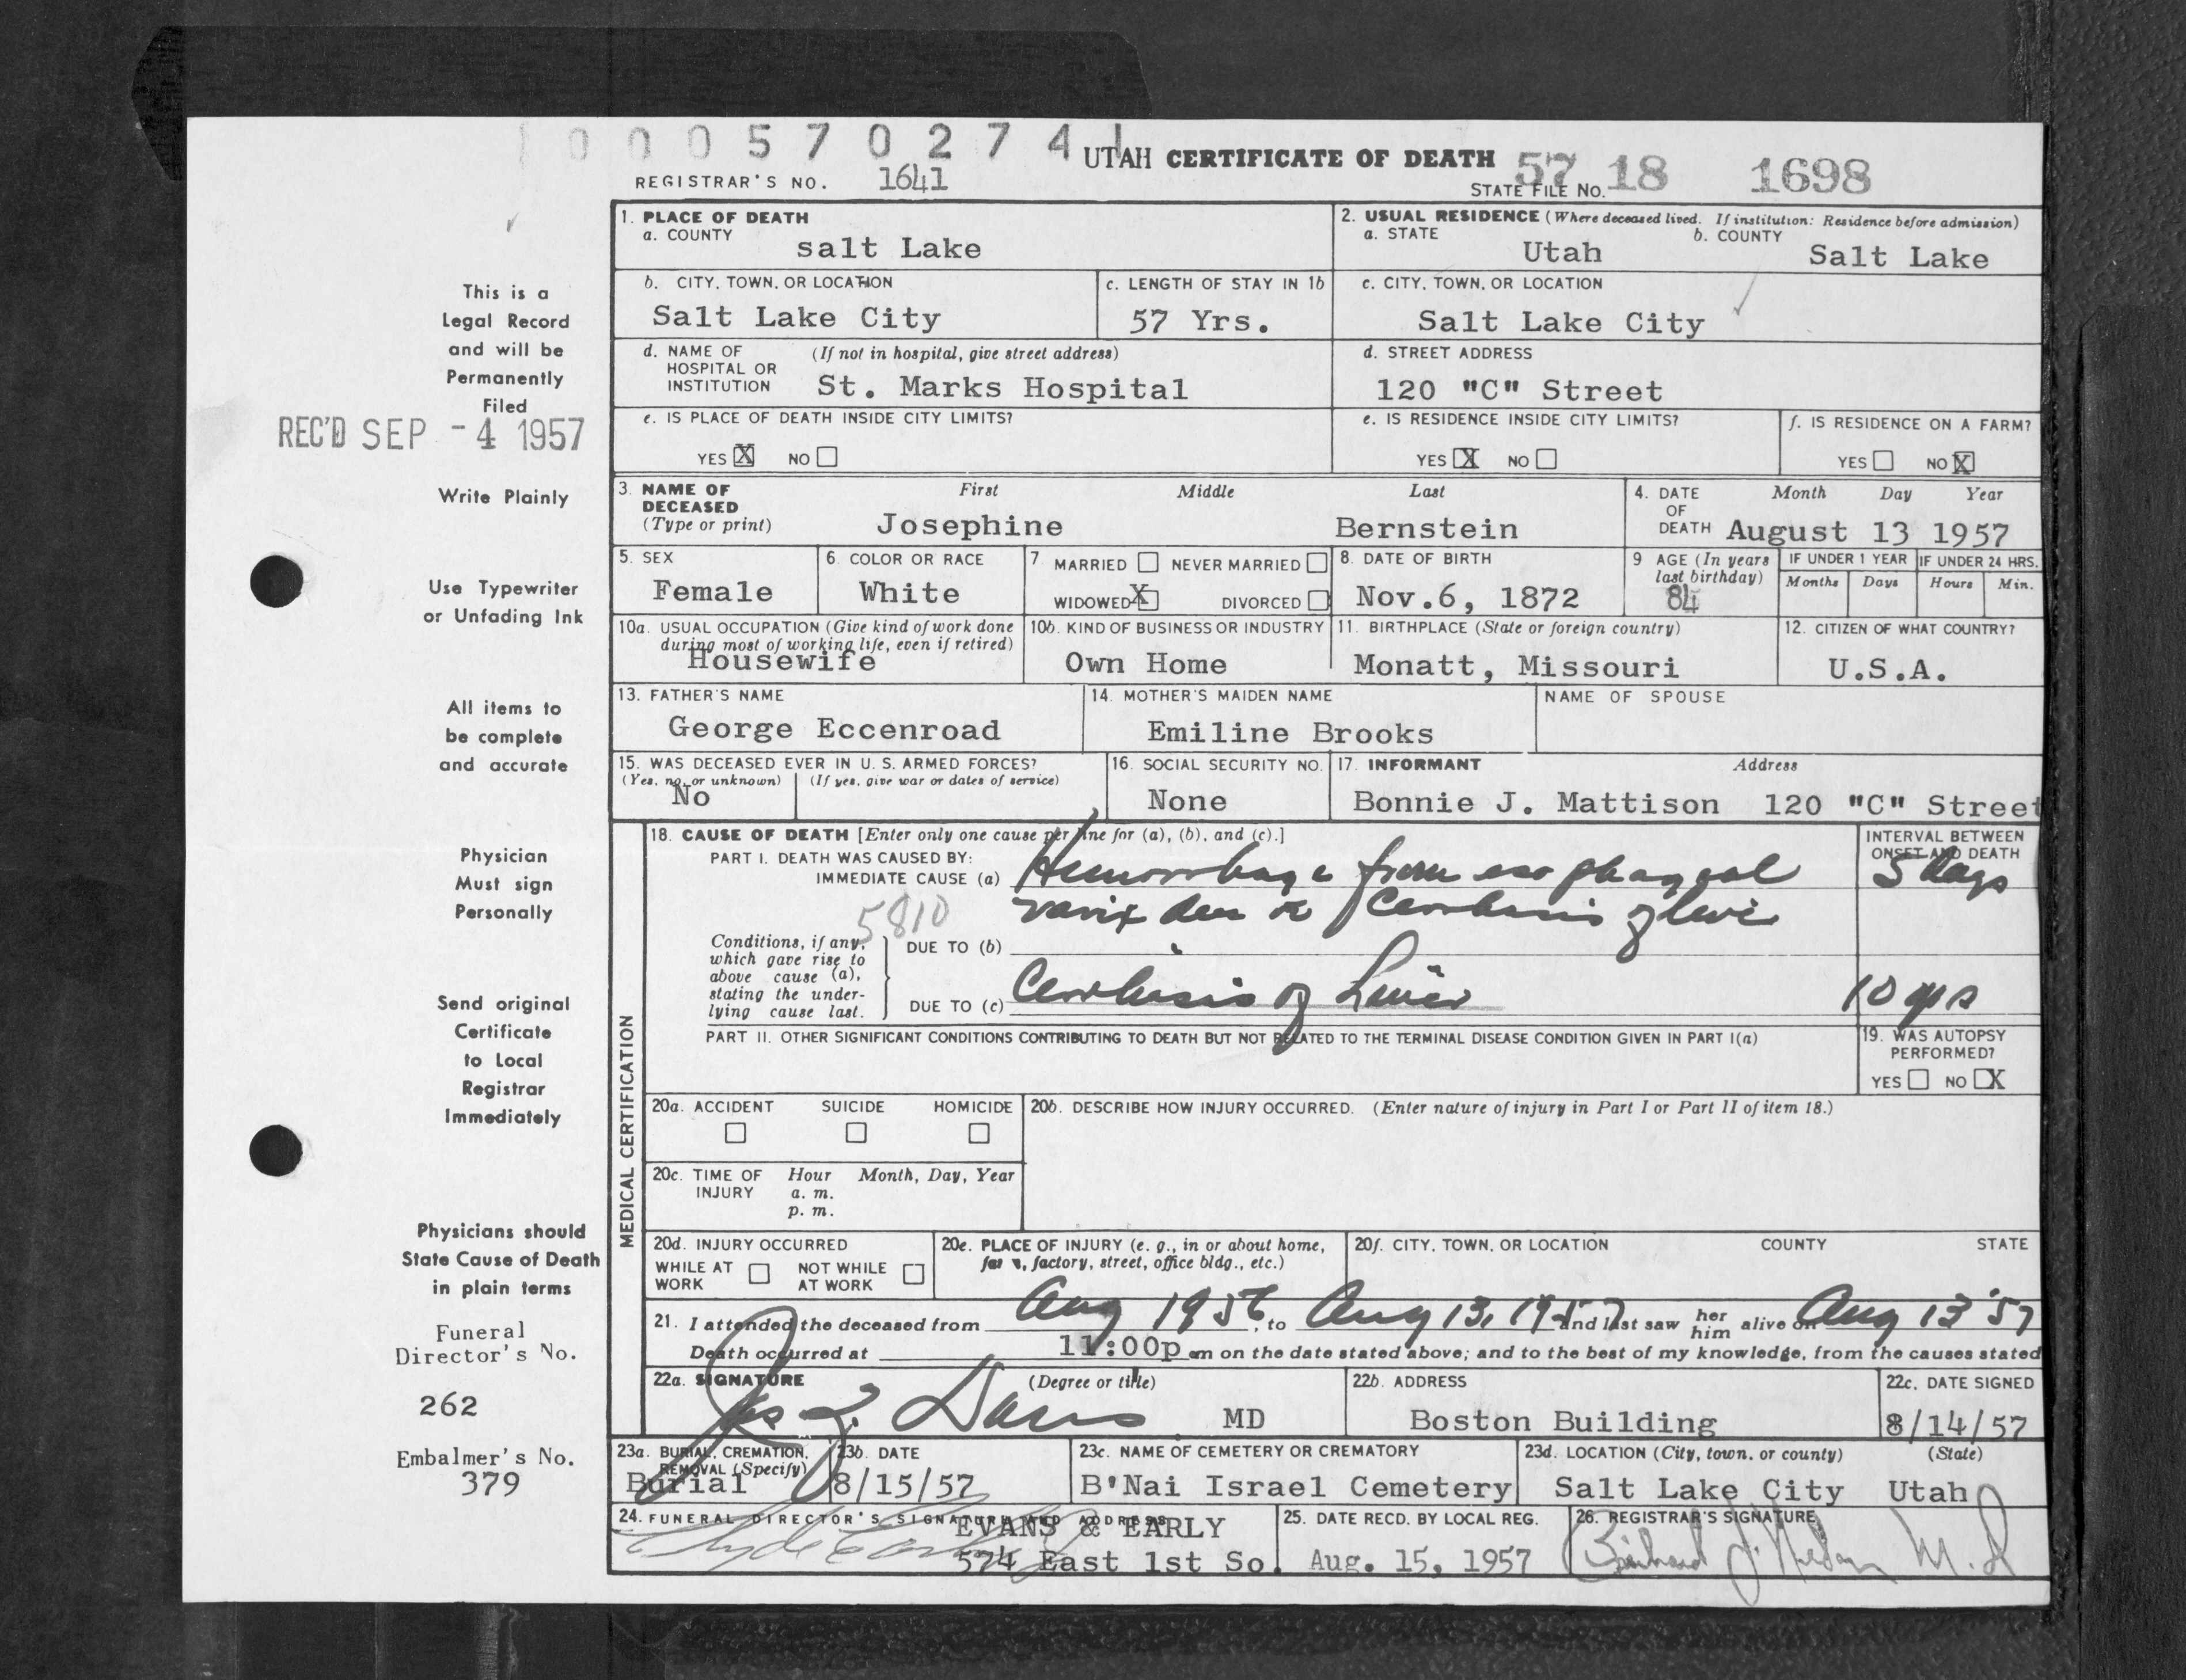 0 0 0 5 7 0 2 7 4 1
UTAH CERTIFICATE OF DEATH
REGISTRAR'S NO. 1641
STATE FILE NO. 57 18 1698
1. PLACE OF DEATH
a. COUNTY
salt Lake
2. USUAL RESIDENCE (Where deceased lived. If institution: Residence before admission)
a. STATE
Utah
b. COUNTY
Salt Lake
b. CITY, TOWN, OR LOCATION
Salt Lake City
c. LENGTH OF STAY IN 1b
57 Yrs.
c. CITY, TOWN, OR LOCATION
Salt Lake City
d. NAME OF HOSPITAL OR INSTITUTION
(If not in hospital, give street address)
St. Marks Hospital
d. STREET ADDRESS
120 "C" Street
e. IS PLACE OF DEATH INSIDE CITY LIMITS?
YES X NO
e. IS RESIDENCE INSIDE CITY LIMITS?
YES X NO
f. IS RESIDENCE ON A FARM?
YES NO X
3. NAME OF DECEASED
(Type or print)
First Middle Last
Josephine Bernstein
4. DATE OF DEATH
Month Day Year
August 13 1957
5. SEX
Female
6. COLOR OR RACE
White
7 MARRIED NEVER MARRIED
WIDOWED X DIVORCED
8. DATE OF BIRTH
Nov.6, 1872
9 AGE (In years last birthday)
84
IF UNDER 1 YEAR
Months Days
IF UNDER 24 HRS.
Hours Min.
10a. USUAL OCCUPATION (Give kind of work done during most of working life, even if retired)
Housewife
10b. KIND OF BUSINESS OR INDUSTRY
Own Home
11. BIRTHPLACE (State or foreign country)
Monatt, Missouri
12. CITIZEN OF WHAT COUNTRY?
U.S.A.
13. FATHER'S NAME
George Eccenroad
14. MOTHER'S MAIDEN NAME
Emiline Brooks
NAME OF SPOUSE
15. WAS DECEASED EVER IN U. S. ARMED FORCES?
(Yes, no, or unknown) (If yes, give war or dates of service)
No
16. SOCIAL SECURITY NO.
None
17. INFORMANT Address
Bonnie J. Mattison 120 "C" Street
MEDICAL CERTIFICATION
18. CAUSE OF DEATH [Enter only one cause per line for (a), (b), and (c).]
INTERVAL BETWEEN ONSET AND DEATH
PART I. DEATH WAS CAUSED BY:
IMMEDIATE CAUSE (a) Hemorrhage from esophageal
5 days
varix due to Cirrhosis of liver
5810
Conditions, if any, which gave rise to above cause (a), stating the underlying cause last.
DUE TO (b)
DUE TO (c) Cirrhosis of Liver
10 yrs
PART II. OTHER SIGNIFICANT CONDITIONS CONTRIBUTING TO DEATH BUT NOT RELATED TO THE TERMINAL DISEASE CONDITION GIVEN IN PART I(a)
19. WAS AUTOPSY PERFORMED?
YES NO X
20a. ACCIDENT SUICIDE HOMICIDE
20b. DESCRIBE HOW INJURY OCCURRED. (Enter nature of injury in Part I or Part II of item 18.)
20c. TIME OF INJURY
Hour Month, Day, Year
a. m.
p. m.
20d. INJURY OCCURRED
WHILE AT WORK NOT WHILE AT WORK
20e. PLACE OF INJURY (e. g., in or about home, farm, factory, street, office bldg., etc.)
20f. CITY, TOWN, OR LOCATION COUNTY STATE
21. I attended the deceased from Aug 1956, to Aug 13, 1957 and last saw her him alive on Aug 13 '57
Death occurred at 11:00p m on the date stated above; and to the best of my knowledge, from the causes stated
22a. SIGNATURE (Degree or title)
MD
22b. ADDRESS
Boston Building
22c. DATE SIGNED
8/14/57
23a. BURIAL, CREMATION, REMOVAL (Specify)
Burial
23b. DATE
8/15/57
23c. NAME OF CEMETERY OR CREMATORY
B'Nai Israel Cemetery
23d. LOCATION (City, town, or county) (State)
Salt Lake City Utah
24. FUNERAL DIRECTOR'S SIGNATURE AND ADDRESS
EVANS & EARLY
574 East 1st So.
25. DATE RECD. BY LOCAL REG.
Aug. 15, 1957
26. REGISTRAR'S SIGNATURE
This is a
Legal Record
and will be
Permanently
Filed
REC'D SEP -4 1957
Write Plainly
Use Typewriter
or Unfading Ink
All items to
be complete
and accurate
Physician
Must sign
Personally
Send original
Certificate
to Local
Registrar
Immediately
Physicians should
State Cause of Death
in plain terms
Funeral
Director's No.
262
Embalmer's No.
379